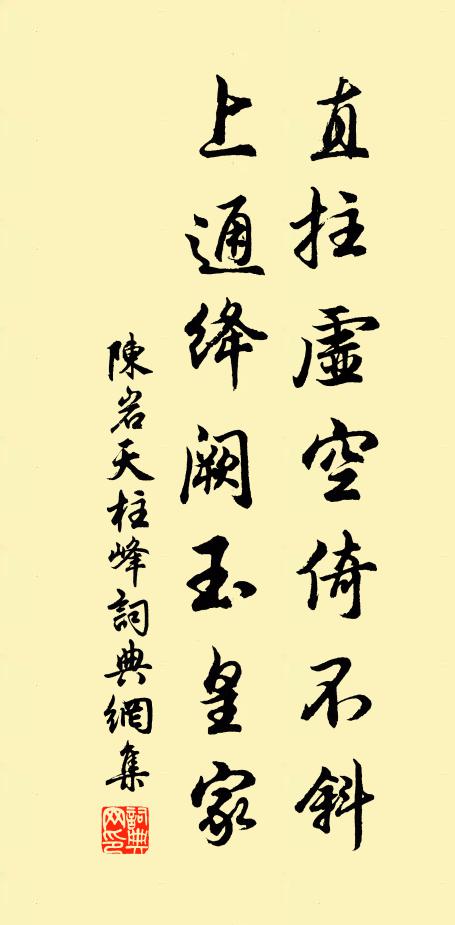 直拄虛空倚不斜
上通絳闕玉皇家
陳岩天柱峰詞典網集
詞典網印